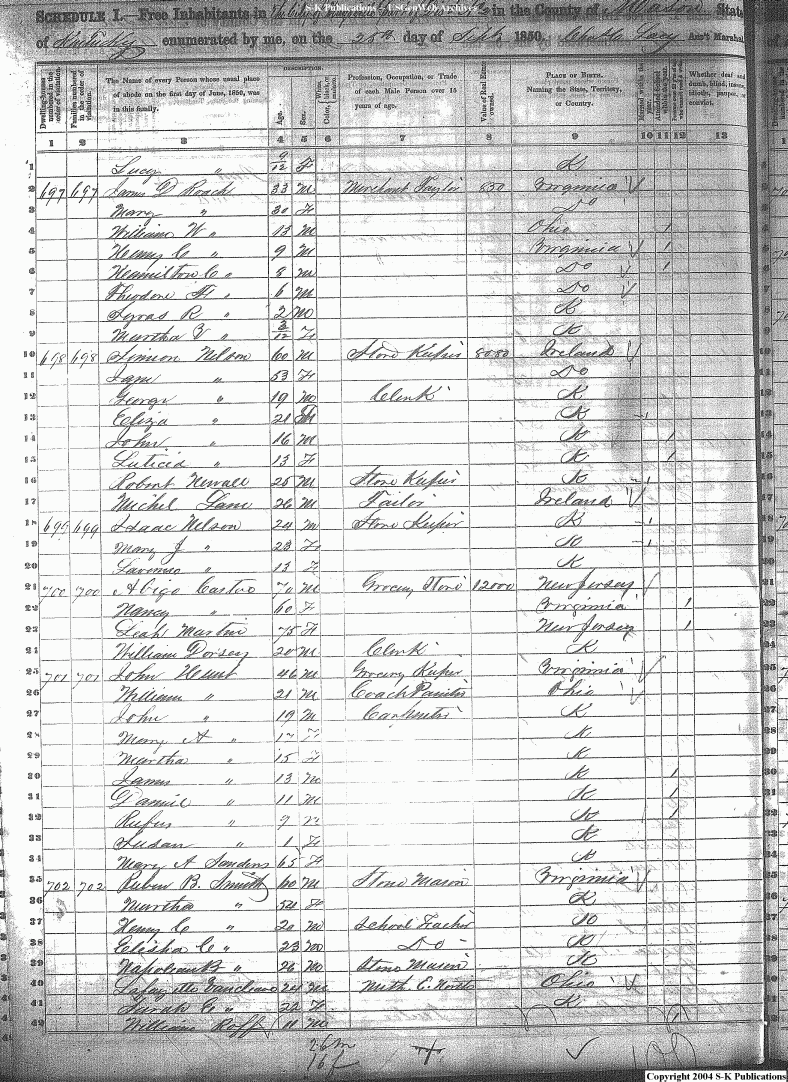 S-K Publications - USGenWeb Archives
SCHEDULE I.—Free Inhabitants in The City of Maysville in the County of Mason State
of Kentucky enumerated by me, on the 25th day of Sept 1850. Charles Lacy Ass't Marshal
Dwelling-houses numbered in the order of visitation.
Families numbered in the order of visitation.
The Name of every Person whose usual place of abode on the first day of June, 1850, was in this family.
DESCRIPTION.
Age.
Sex.
Color,
Profession, Occupation, or Trade of each Male Person over 15 years of age.
Value of Real Estate owned.
PLACE OF BIRTH. Naming the State, Territory, or Country.
Married within the year.
Attended School within the year.
Whether deaf and dumb, blind, insane, idiotic, pauper, or convict.
1 2 3 4 5 6 7 8 9 10 11 12 13
1 Lucy " 9/12 F K
2 697 697 James D Roach 33 M Merchant Taylor 850 Virginia
3 Mary " 30 F Do
4 William W " 13 M Ohio 1
5 Henry C " 9 M Virginia 1
6 Hamilton C " 8 M Do 1
7 Theodore F " 6 M Do
8 R " 2 M K
9 Martha " 3/12 F K
10 698 698 Simeon Nelson 60 M Store Keeper 8050 Ireland
11 Jane " 53 F Do
12 George " 19 M Clerk K
13 Eliza " 21 F K 1
14 John " 16 M K 1
15 Luticia " 13 F K 1
16 Robert Newall 25 M Store Keeper K 1
17 Michel Lane 26 M Tailor Ireland
18 699 699 Isaac Nelson 24 M Store Keeper K 1
19 Mary J " 23 F K 1
20 " 13 F K
21 700 700 Casto 70 M Grocery Store 12000 New Jersey
22 Nancy " 60 F Virginia 1
23 Leah Martin 75 F New Jersey 1
24 William Dorsey 20 M Clerk K
25 701 701 John Hunt 46 M Grocery Keeper Virginia
26 William " 21 M Coach Painter Ohio
27 John " 19 M Carpenter K
28 Mary A " 17 F K
29 Martha " 15 F K
30 James " 13 M K 1
31 Daniel " 11 M K 1
32 Rufus " 9 M K 1
33 Susan " 1 F K
34 Mary A Sanders 65 F K
35 702 702 Ruben B. Smith 60 M Stone Mason Virginia
36 Martha " 54 F K
37 Henry C " 20 M School Teacher K
38 Elisha C " 23 M Do K
39 Napoleon B " 26 M Stone Mason K
40 Lafayette 24 M Meth. C. North Ohio
41 Sarah C " 22 F K
42 William Roff 11 M 1
26 m
16 f
Copyright 2004 S-K Publications